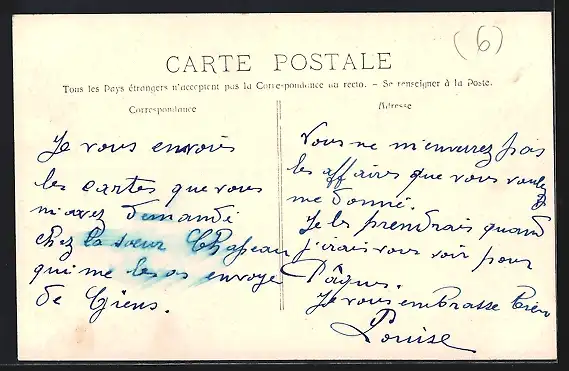 (6)
CARTE POSTALE
Tous les Pays étrangers n'acceptent pas la Correspondance au recto. - Se renseigner à la Poste.
Correspondance
Je vous envoies
les cartes que vous
m'avez demandé
chez la sœur Chapeau
qui me les as envoye
de Giens.
Adresse
Vous ne m'enverrez pas
les affaires que vous voulez
me donné.
Je les prendrais quand
j'irais vous voir pour
Pâques.
Je vous embrasse bien
Louise